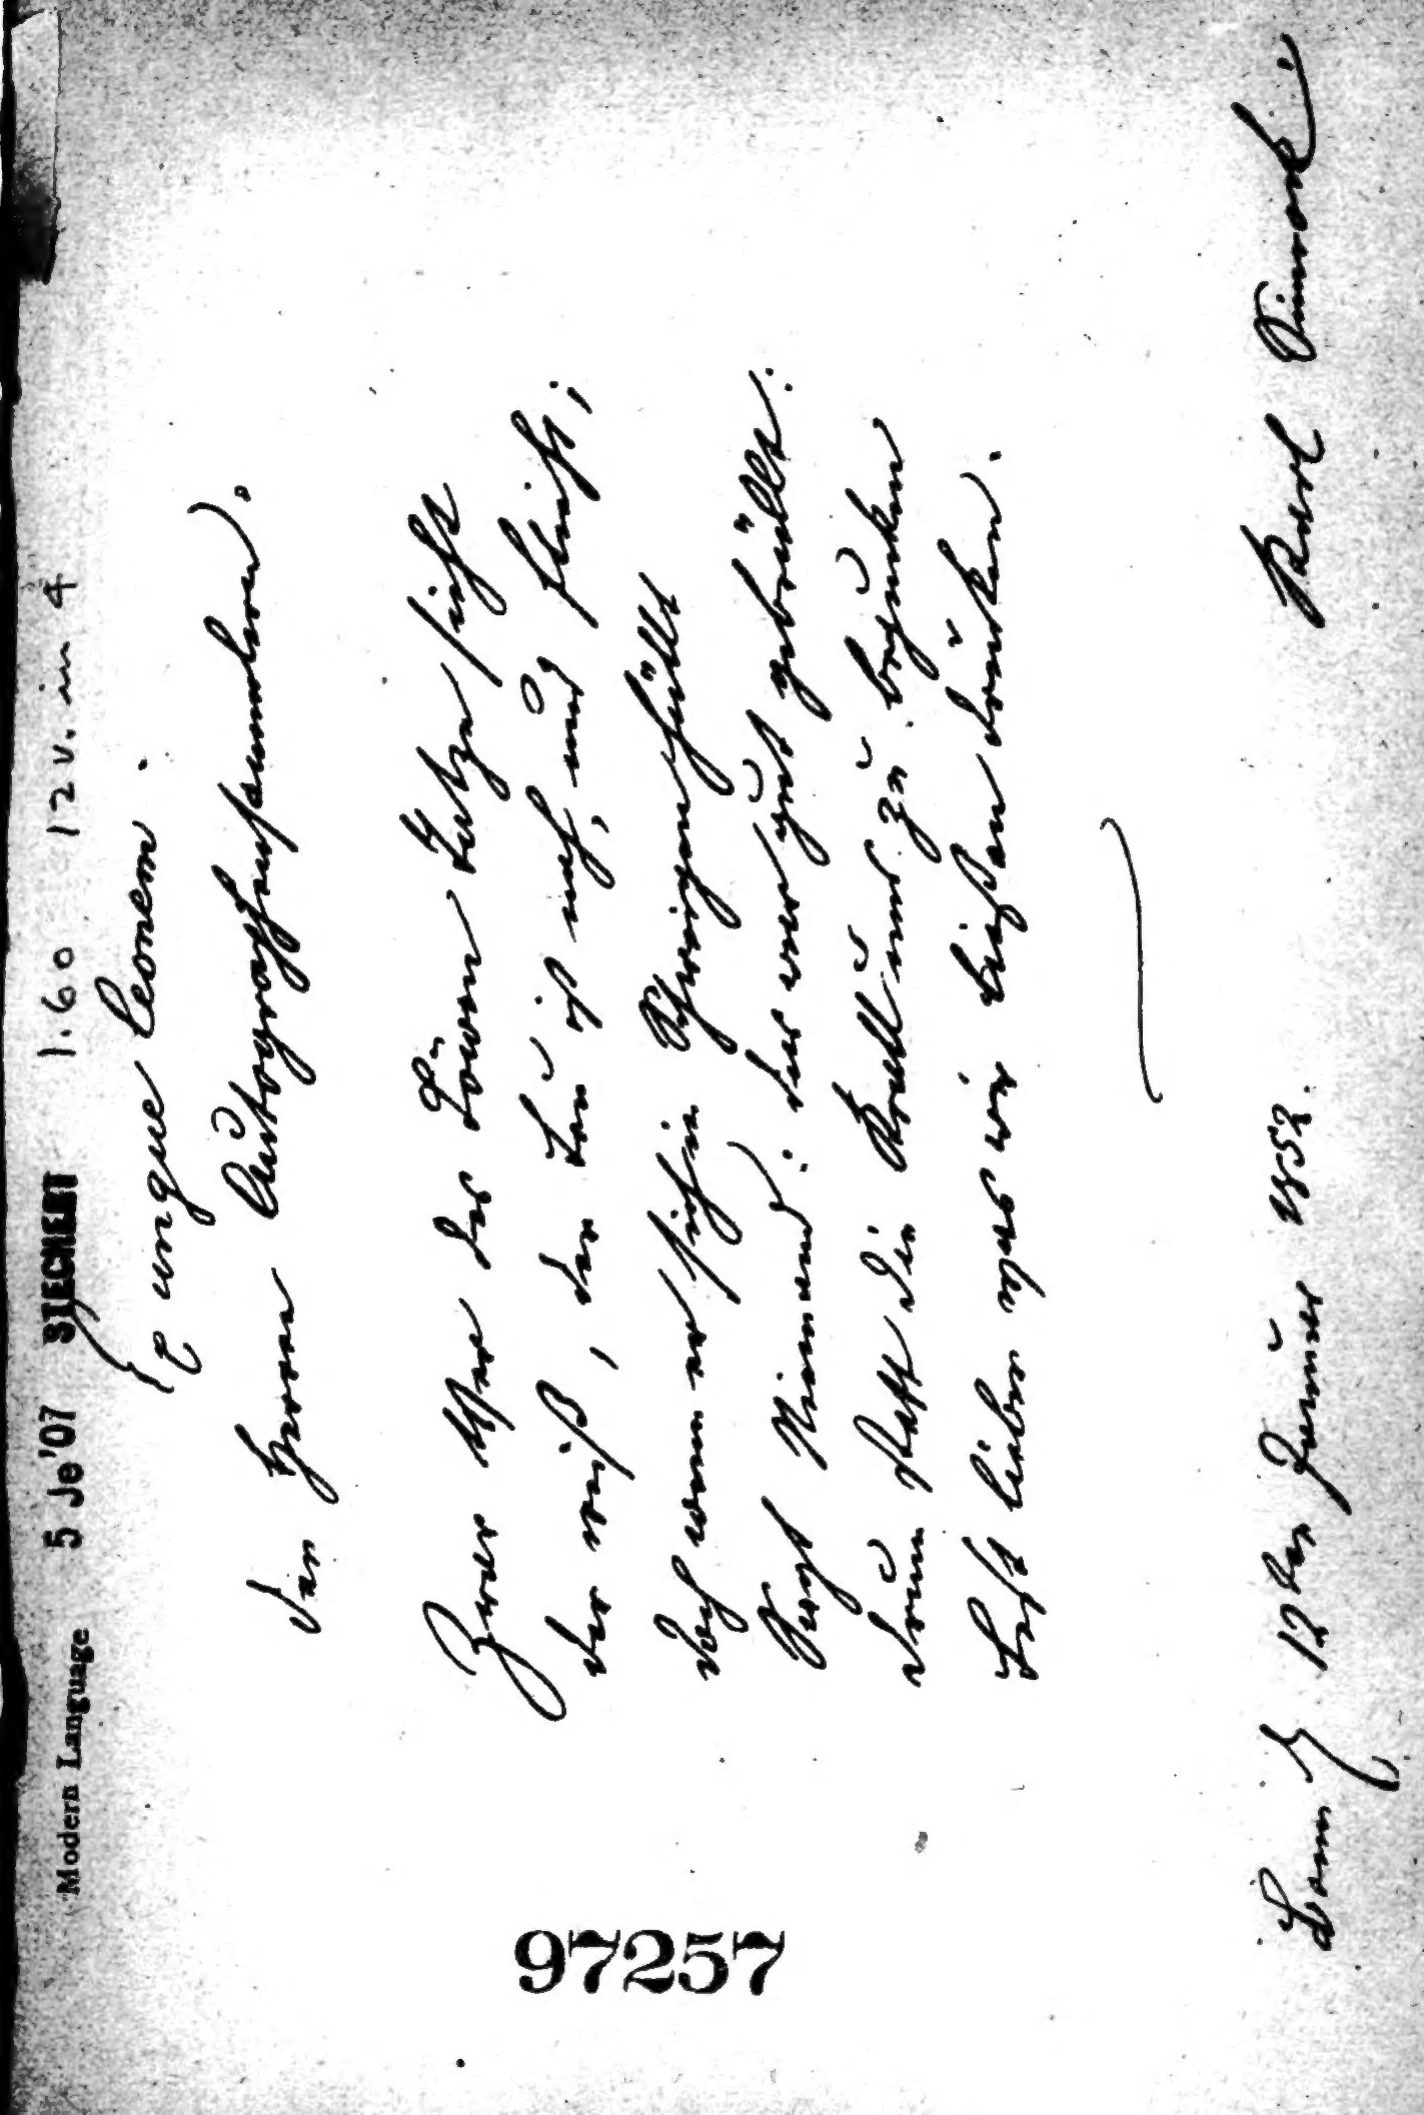 Modern Language 5 Je '07 STECHERT 1.60 12 v. in 4
E ungue leonem.
Den Herren Autographensammlern.
Zwar Wer des Löwen Tatze sieht
Der weiß, der Leu ist nah, und flieht;
Doch wenn er sich in Schweigen hüllt
Sagt Niemand: der war gut gebrüllt.
Drum statt die Krallen uns zu begucken
Laßt lieber was wir ließen drucken.
Bonn 12ten Januar 1852.
Karl Simrock
97257